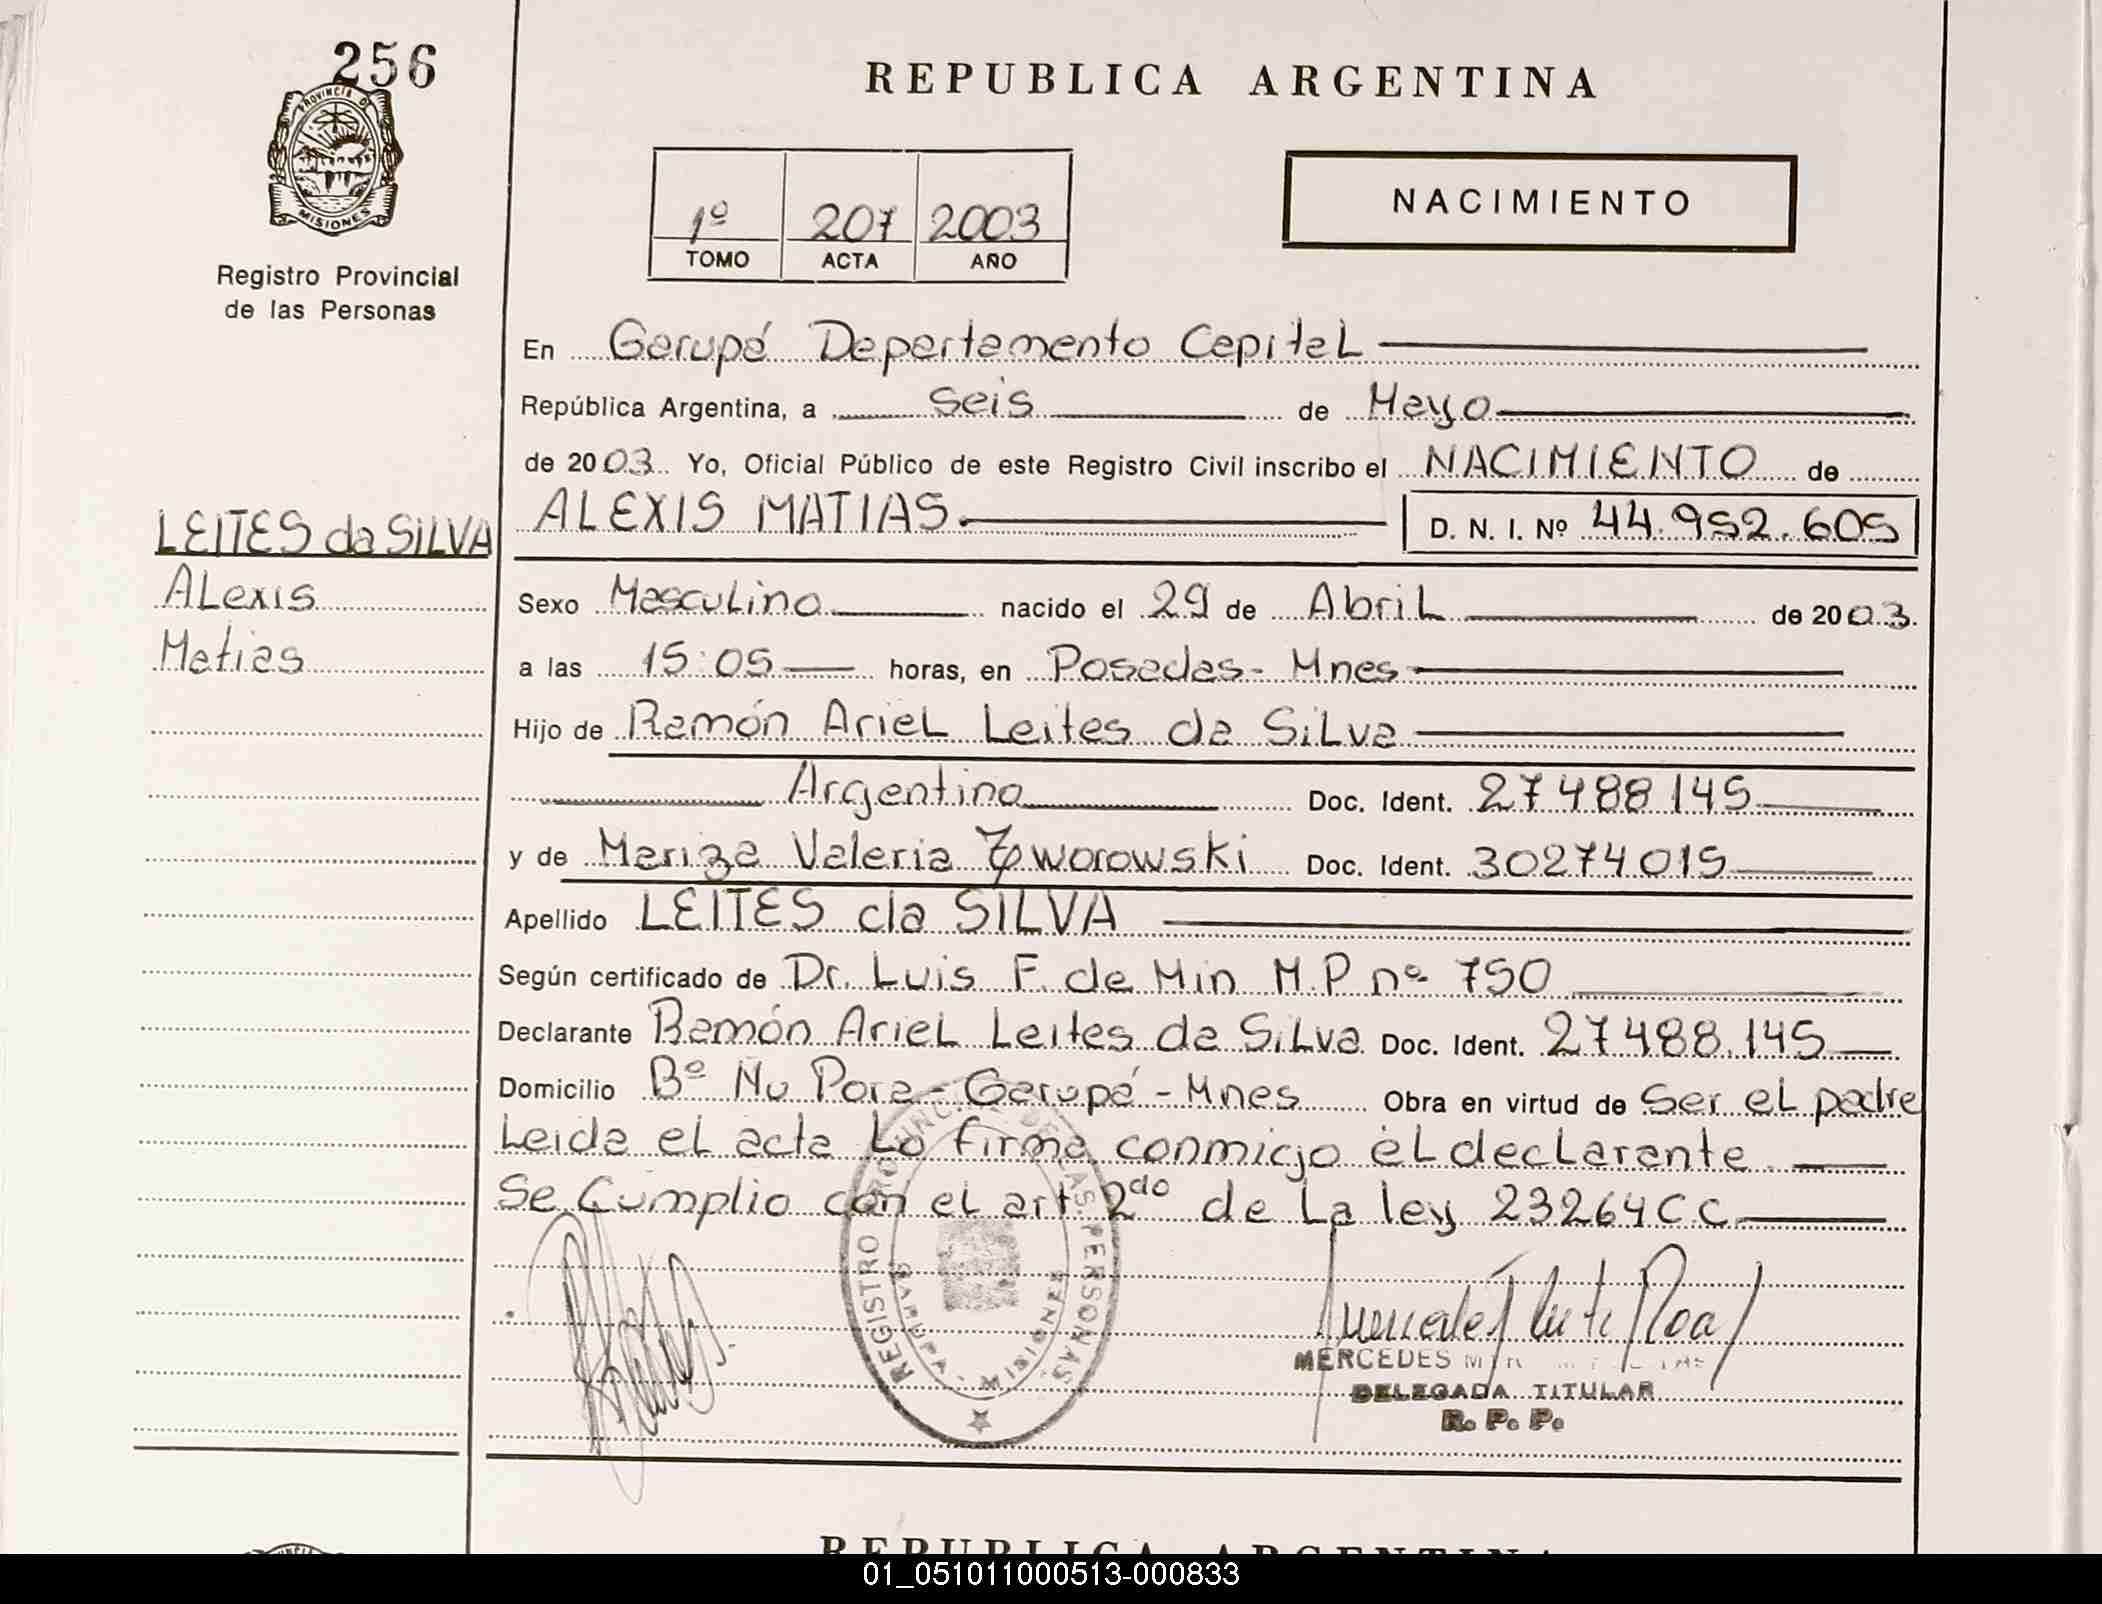 256
PROVINCIA DE
MISIONES
Registro Provincial
de las Personas
LEITES da SILVA
ALexis
Matias
REPUBLICA ARGENTINA
1º 207 2003
TOMO ACTA AÑO
NACIMIENTO
En Garupá Departamento CapitaL
República Argentina, a Seis de Mayo
de 2003 Yo, Oficial Público de este Registro Civil inscribo el NACIMIENTO de
ALEXIS MATIAS. D. N. I. Nº 44.952.605
Sexo MascuLino nacido el 29 de AbriL de 2003.
a las 15:05 horas, en Posadas - Mnes
Hijo de Ramón ArieL Leites da SiLva
Argentino Doc. Ident. 27488145
y de Mariza Valeria Zaworowski Doc. Ident. 30274015
Apellido LEITES da SILVA
Según certificado de Dr. Luis F. de Min M.P nº 750
Declarante Ramón ArieL Leites da SiLva Doc. Ident. 27488.145
Domicilio Bº Ñu Pora - Garupá - Mnes Obra en virtud de Ser eL padre
Leida eL acta Lo firma conmigo eL decLarante.
Se Cumplio con eL art. 2do de La ley 23264 CC
REGISTRO PROVINCIAL DE LAS PERSONAS
GARUPA - MISIONES
MERCEDES
DELEGADA TITULAR
R. P. P.
REPUBLICA ARGENTINA
01_051011000513-000833